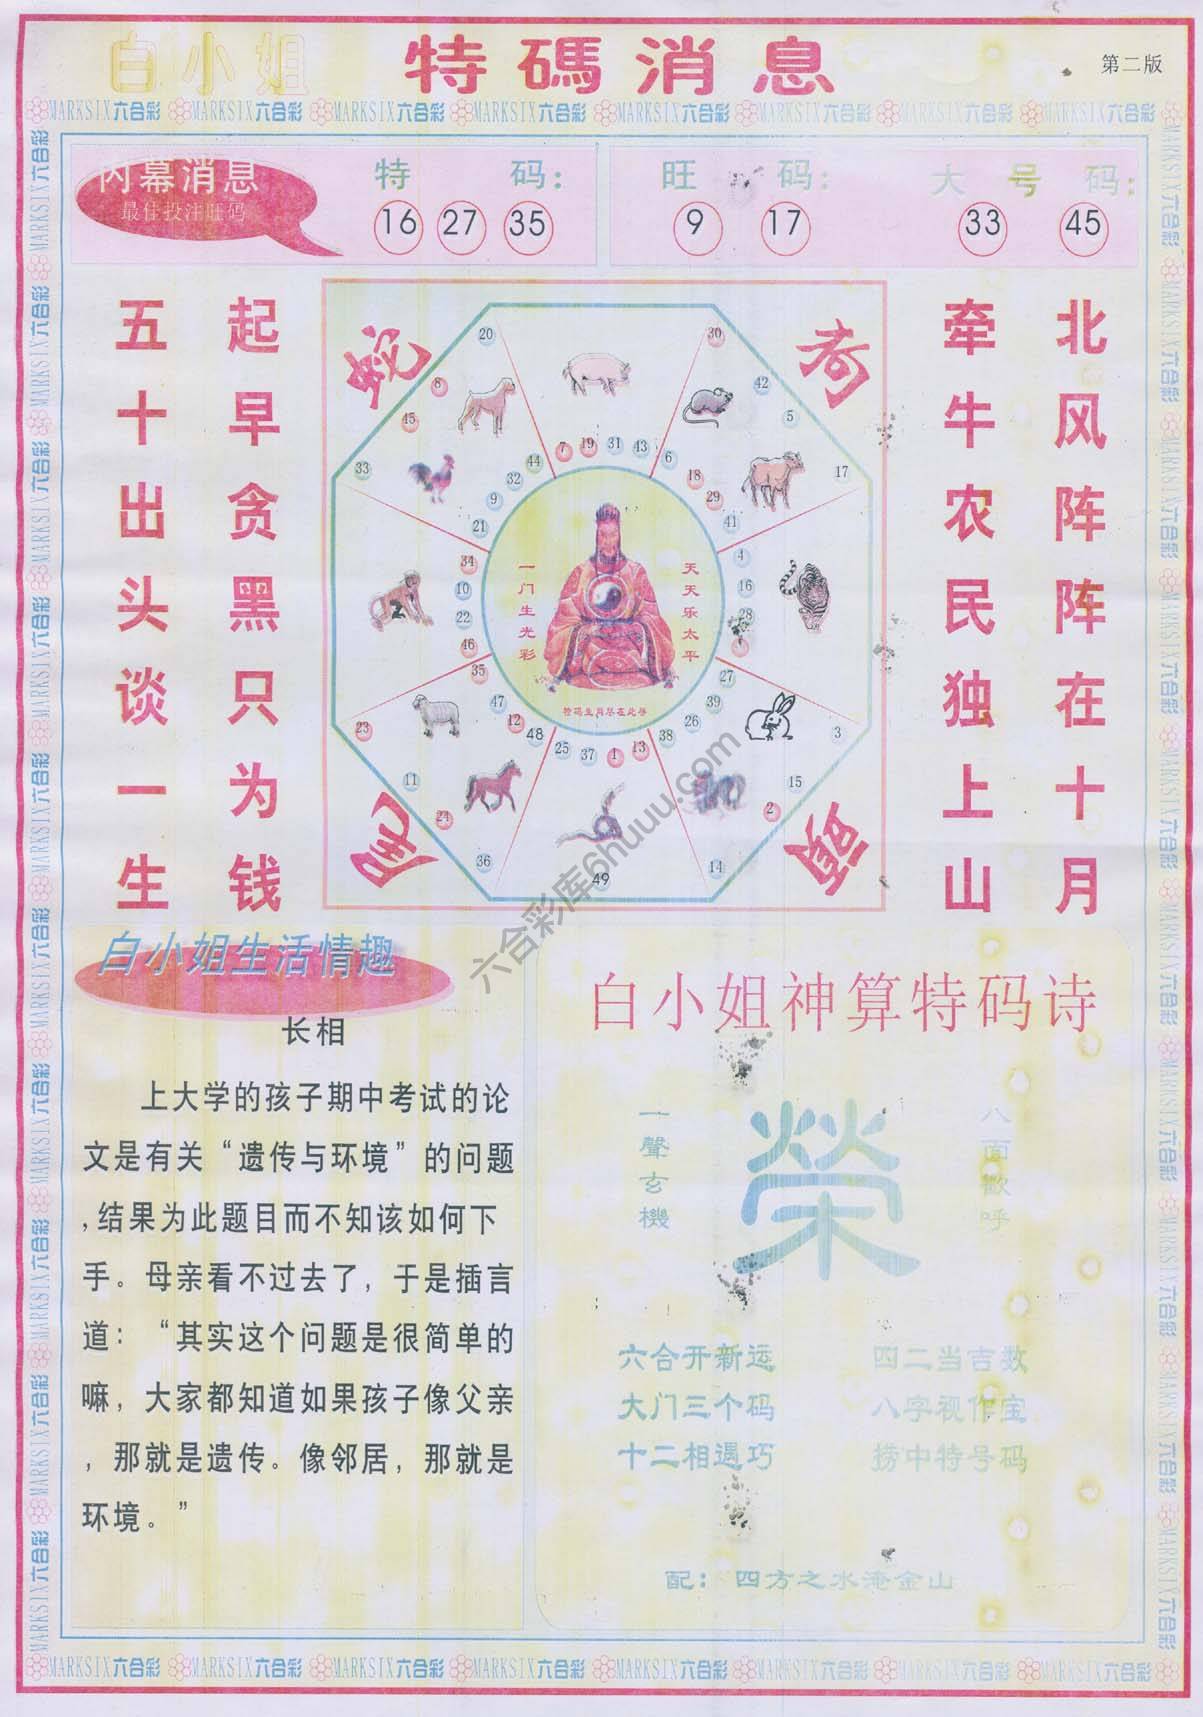 白小姐 特碼消息
第二版
MARKSIX六合彩 MARKSIX六合彩 MARKSIX六合彩 MARKSIX六合彩 MARKSIX六合彩 MARKSIX六合彩 MARKSIX六合彩 MARKSIX六合彩
内幕消息
最佳投注旺码
特码：
16 27 35
旺码：
9 17
大号码：
33 45
北风阵阵在十月
牵牛农民独上山
起早贪黑只为钱
五十出头谈一生
蛇
狗
20
30
8
45
42
5
33
17
7 19 31 43
44
32
9
21
6
18
29
41
34
10
22
46
4
16
28
35
47
12
48
27
39
26
38
25 37 1 13
23
11
24
36
3
15
2
14
49
天天乐太平
一门生光彩
特码生肖尽在此寻
六合彩库6huuu.com
白小姐生活情趣
长相
上大学的孩子期中考试的论
文是有关“遗传与环境”的问题
,结果为此题目而不知该如何下
手。母亲看不过去了，于是插言
道：“其实这个问题是很简单的
嘛，大家都知道如果孩子像父亲
，那就是遗传。像邻居，那就是
环境。”
白小姐神算特码诗
八面歡呼
榮
一聲玄機
六合开新运 四二当吉数
大门三个码 八字视作宝
十二相遇巧 捞中特号码
配：四方之水淹金山
MARKSIX六合彩 MARKSIX六合彩 MARKSIX六合彩 MARKSIX六合彩 MARKSIX六合彩 MARKSIX六合彩 MARKSIX六合彩 MARKSIX六合彩